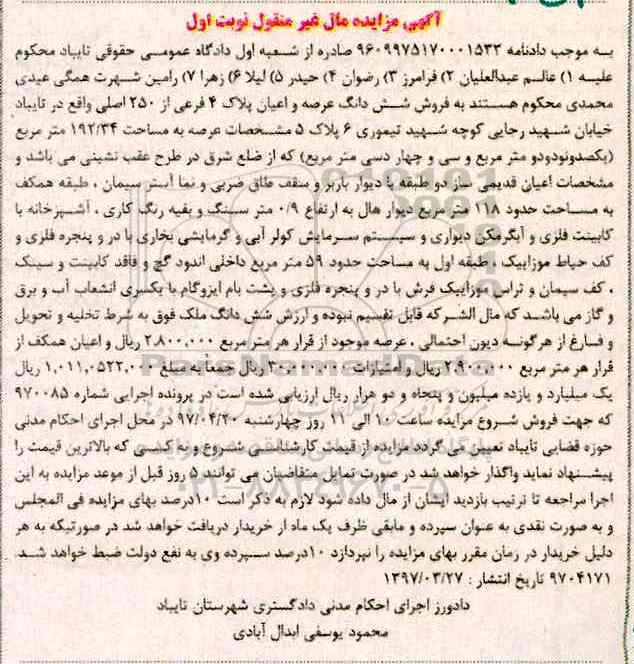 آگهی مزایده مال غیر منقول نوبت اول
به موجب دادنامه ۹۶۰۹۹۷۵۱۷۰۰۰۱۵۳۳ صادره از شعبه اول دادگاه عمومی حقوقی تایباد محکوم
علیه ۱) عالم عبدالعلیان ۲) فرامرز ۳) رضوان ۴) حیدر ۵) لیلا ۶) زهرا ۷) رامین شهرت همگی عیدی
محمدی محکوم هستند به فروش شش دانگ عرصه و اعیان پلاک ۴ فرعی از ۲۵۰ اصلی واقع در تایباد
خیابان شهید رجایی کوچه شهید تیموری ۶ پلاک ۵ مشخصات عرصه به مساحت ۱۹۲/۳۴ متر مربع
(یکصدونودودو متر مربع و سی و چهار دسی متر مربع) که از ضلع شرق در طرح عقب نشینی می باشد و
مشخصات اعیان قدیمی ساز دو طبقه با دیوار باربر و سقف طاق ضربی و نما آستر سیمان ، طبقه همکف
به مساحت حدود ۱۱۸ متر مربع دیوار هال به ارتفاع ۰/۹ متر سنگ و بقیه رنگ کاری ، آشپزخانه با
کابینت فلزی و آبگرمکن دیواری و سیستم سرمایش کولر آبی و گرمایشی بخاری با در و پنجره فلزی و
کف حیاط موزاییک ، طبقه اول به مساحت حدود ۵۹ متر مربع داخلی اندود گچ و فاقد کابینت و سینک
، کف سیمان و تراس موزاییک فرش با در و پنجره فلزی و پشت بام ایزوگام با یکسری انشعاب آب و برق
و گاز می باشد که مال الشرکه قابل تقسیم نبوده و ارزش شش دانگ ملک فوق به شرط تخلیه و تحویل
و فارغ از هرگونه دیون احتمالی ، عرصه موجود از قرار هر متر مربع ۲.۸۰۰.۰۰۰ ریال و اعیان همکف از
قرار هر متر مربع ۲.۹۰۰.۰۰۰ ریال و امتیازات ۳۰.۰۰۰.۰۰۰ ریال جمعا به مبلغ ۱,۰۱۱,۰۵۲۲,۰۰۰ ریال
یک میلیارد و یازده میلیون و پنجاه و دو هزار ریال ارزیابی شده است در پرونده اجرایی شماره ۹۷۰۰۸۵
که جهت فروش شروع مزایده ساعت ۱۰ الی ۱۱ روز چهارشنبه ۹۷/۰۴/۲۰ در محل اجرای احکام مدنی
حوزه قضایی تایباد تعیین می گردد مزایده از قیمت کارشناسی شروع و به کسی که بالاترین قیمت را
پیشنهاد نماید واگذار خواهد شد در صورت تمایل متقاضیان می توانند ۵ روز قبل از موعد مزایده به این
اجرا مراجعه تا ترتیب بازدید ایشان از مال داده شود لازم به ذکر است ۱۰درصد بهای مزایده فی المجلس
و به صورت نقدی به عنوان سپرده و مابقی ظرف یک ماه از خریدار دریافت خواهد شد در صورتیکه به هر
دلیل خریدار در زمان مقرر بهای مزایده را نپردازد ۱۰درصد سپرده وی به نفع دولت ضبط خواهد شد.
۹۷۰۴۱۷۱ تاریخ انتشار : ۱۳۹۷/۰۳/۲۷
دادورز اجرای احکام مدنی دادگستری شهرستان تایباد
محمود یوسفی ابدال آبادی